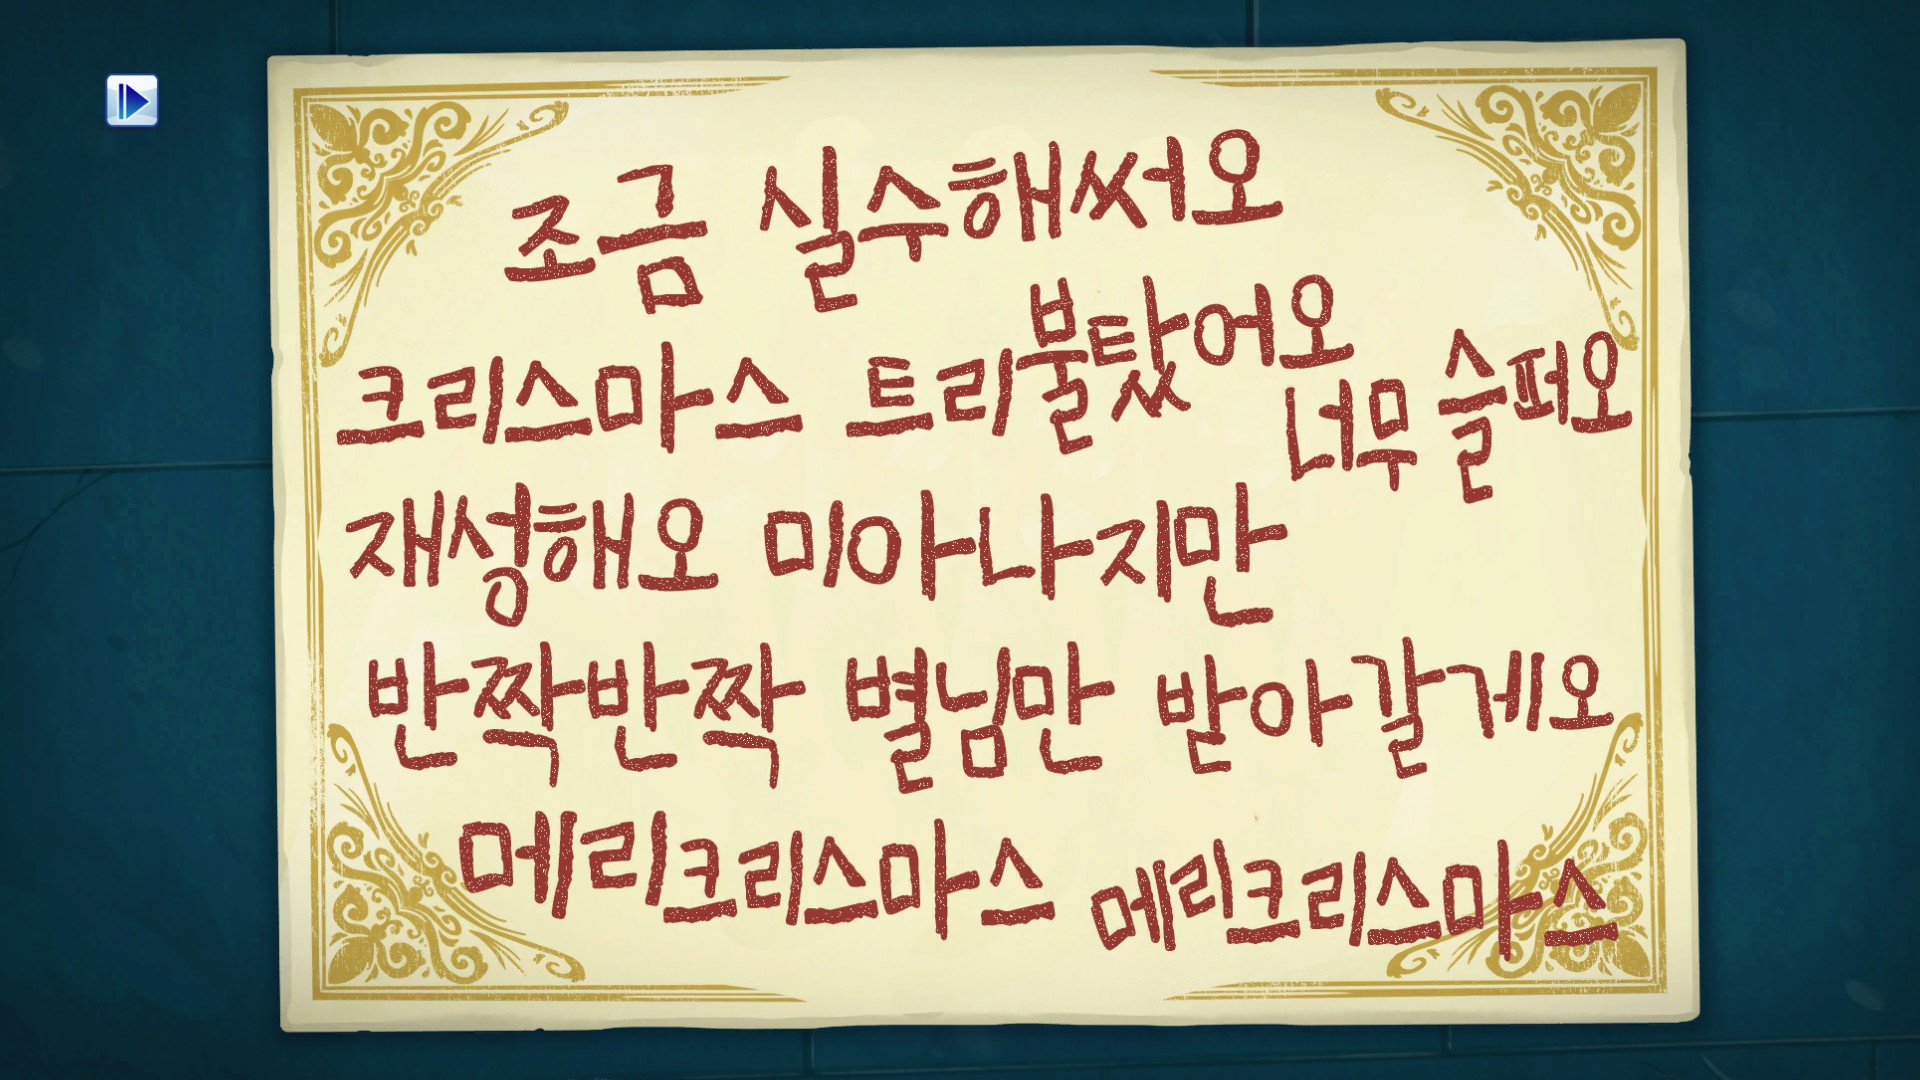 조금 실수해써오
크리스마스 트리불탔어오
너무 슬퍼오
재성해오 미아나지만
반짝반짝 별님만 받아갈게오
메리크리스마스 메리크리스마스